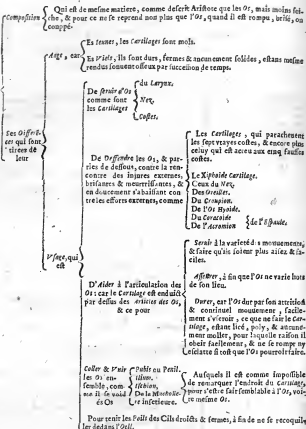 Qui est de mesme matiere, comme descrit Aristote que les Os, mais moins sei-
Composition che, & pour ce ne se reprend non plus que l'Os, quand il est rompu, brisé, ou
couppé.
Es Ieunes, les Cartilages sont mols.
Aage, car
Es Viels, ils sont durs, fermes & anciennement solides, estans mesme
rendus souuent osseux par succession de temps.
De seruir d'Os
comme font
les Cartilages
du Larynx.
Nez,
Costes.
Ses Differen-
ces qui sont
tirees de
leur
De Deffendre les Os, & par-
ties de dessous, contre la ren-
contre des iniures externes,
brisantes & meurtrissantes, &
en doucement s'abaissant con-
tre les efforts externes, comme
Les Cartilages, qui parachevent
les sept vrayes costes, & encore plus
celuy qui est attaché aux cinq fausses
costes.
Le Xiphoide Cartilage.
Ceux du Nez,
Des Oreilles.
Du Croupion.
De l'Os Hyoide.
Du Coracoide
De l'Acromion
de l'Espaule.
Vsage, qui
est
D'Aider à l'articulation des
Os: car le Cartilage est enduict
par dessus des articles des Os,
& ce pour
Seruir à la varieté des mouuemens,
& faire qu'ils soient plus aisez & fa-
ciles.
Asseurer, à fin que l'Os ne varie hors
de son lieu.
Durer, car l'Os dur par son attrition
& continuel mouuement, facile-
ment s'vseroit, ce que ne fait le Car-
tilage, estant licé, poly, & aucune-
ment moller, pour laquelle raison il
obeit facilement, & ne se rompt ny
esclatte si tost que l'Os pourroit faire.
Coller & Vnir
les Os en-
semble, com
me il se void
és Os
Pubis ou Penil.
Ilium.
Ischion.
De la Maschoile-
re inferieure.
Ausquels il est comme impossible
de remarquer l'endroit du Cartilage,
pour s'estre fait semblable à l'Os, voi-
re mesme Os.
Pour tenir les Poils des Cils droicts & fermes, à fin de ne se recoquil-
ler dedans l'Oeil.